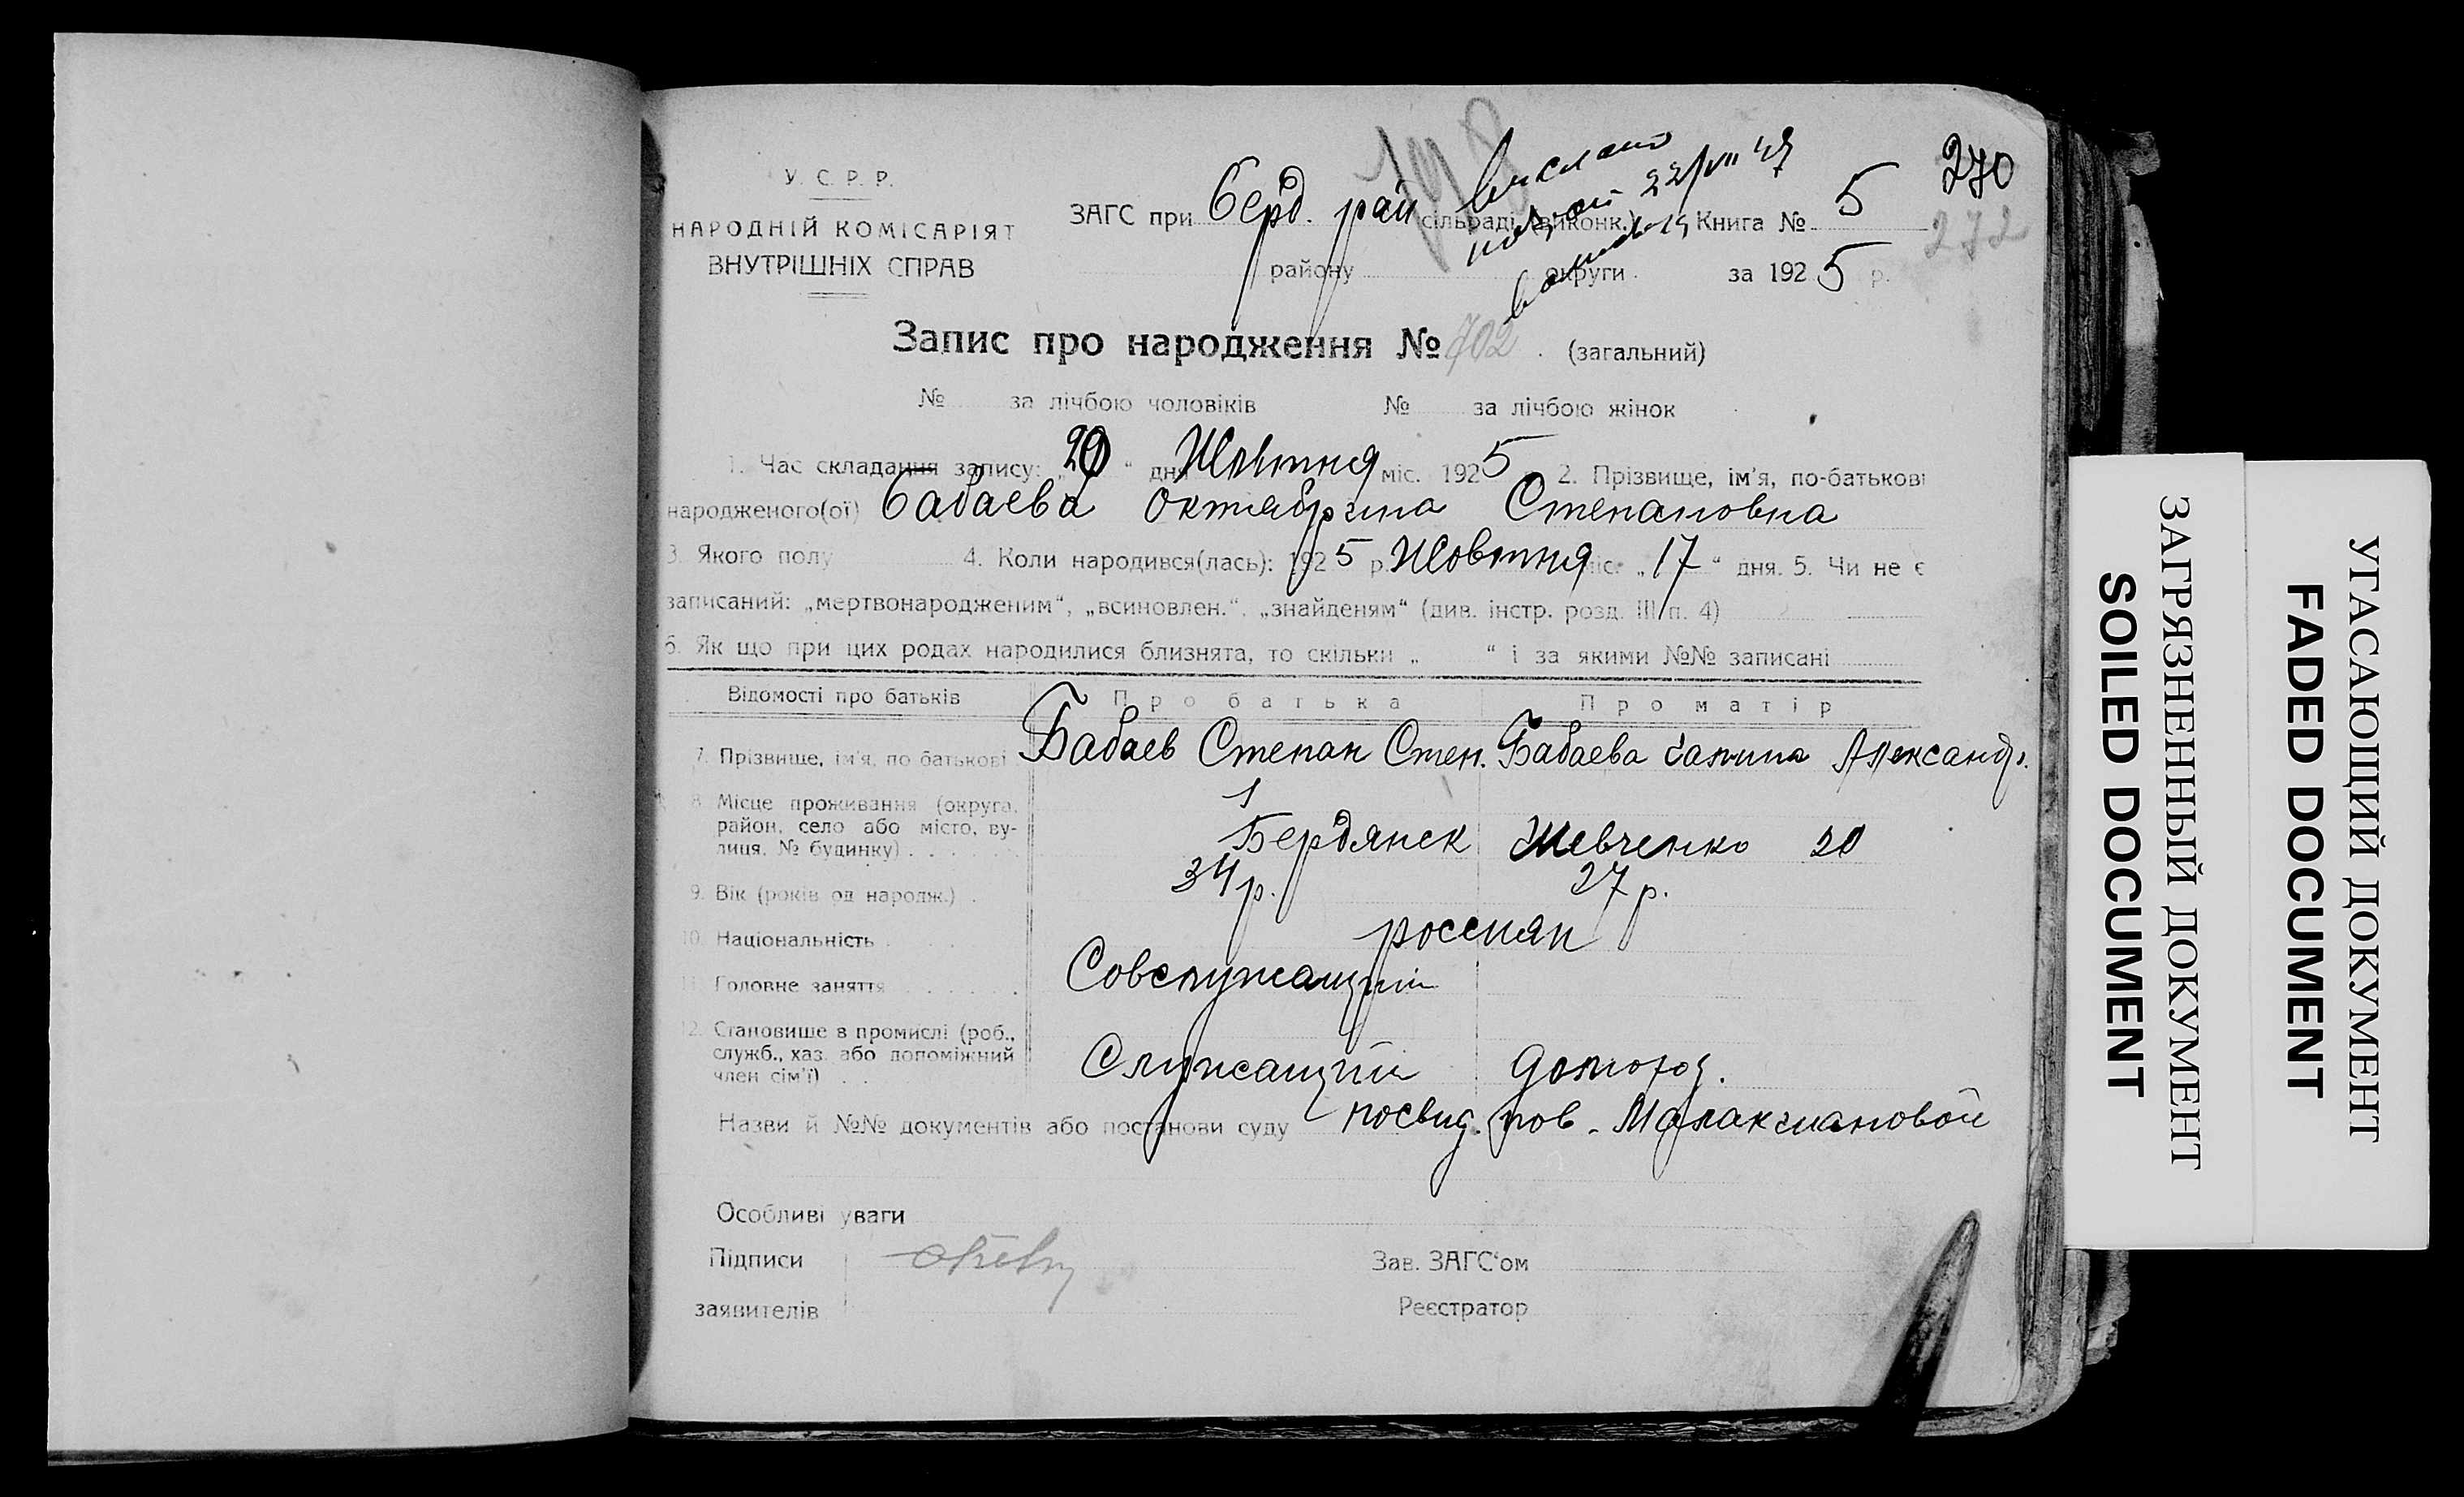 270
272
198
вислано
22/VII 47
У. С. Р. Р.
НАРОДНІЙ КОМІСАРІЯТ
ВНУТРІШНІХ СПРАВ
ЗАГС при Берд. рай сільраді (виконк.) Книга № 5
району округи за 1925 р.
Запис про народження № 702. (загальний)
№ за лічбою чоловіків № за лічбою жінок
1. Час складання запису: „20“ дня Жовтня міс. 1925 2. Прізвище, ім'я, по-батькові
народженого(ої) Бабаева Октябрина Степановна
3. Якого полу 4. Коли народився(лась): 1925 р. Жовтня міс. „17“ дня. 5. Чи не є
записаний: „мертвонародженим“, „всиновлен.“, „знайденям“ (див. інстр. розд. III п. 4)
6. Як що при цих родах народилися близнята, то скільки „ “ і за якими №№ записані
Відомості про батьків Про батька Про матір
7. Прізвище, ім'я, по батькові Бабаев Степан Степ. Бабаева Галина Александр.
8. Місце проживання (округа,
район, село або місто, ву-
лиця, № будинку) . . . Бердянск Шевченко 20
9. Вік (років од народж.) . 34 р. 27 р.
10. Національність россиян
11. Головне заняття Совслужащий
12. Становище в промислі (роб.,
служб., хаз. або допоміжний
член сім'ї) . . Служащий домохоз.
Назви й №№ документів або постанови суду посвид. пов. Малаксиановой
Особливі уваги
Підписи Зав. ЗАГС'ом
заявителів Реєстратор
ЗАГРЯЗНЕННЫЙ ДОКУМЕНТ
SOILED DOCUMENT
УГАСАЮЩИЙ ДОКУМЕНТ
FADED DOCUMENT